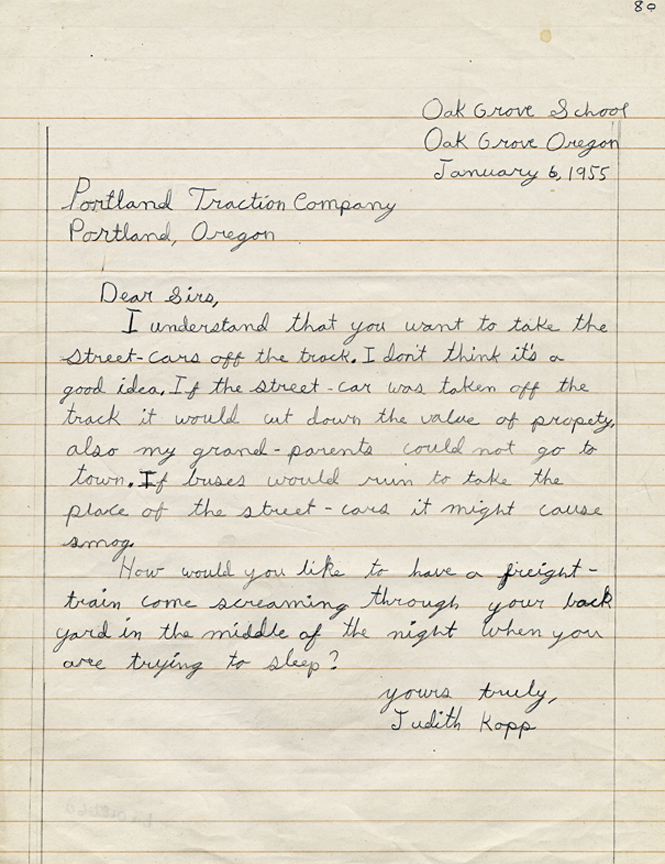 80
Oak Grove School
Oak Grove Oregon
January 6, 1955
Portland Traction Company
Portland, Oregon
Dear Sirs,
I understand that you want to take the
street-cars off the track. I don't think it's a
good idea. If the street-car was taken off the
track it would cut down the value of propety,
also my grand-parents could not go to
town. If buses would run to take the
place of the street-cars it might cause
smog.
How would you like to have a freight-
train come screaming through your back
yard in the middle of the night when you
are trying to sleep?
yours truly,
Judith Kopp